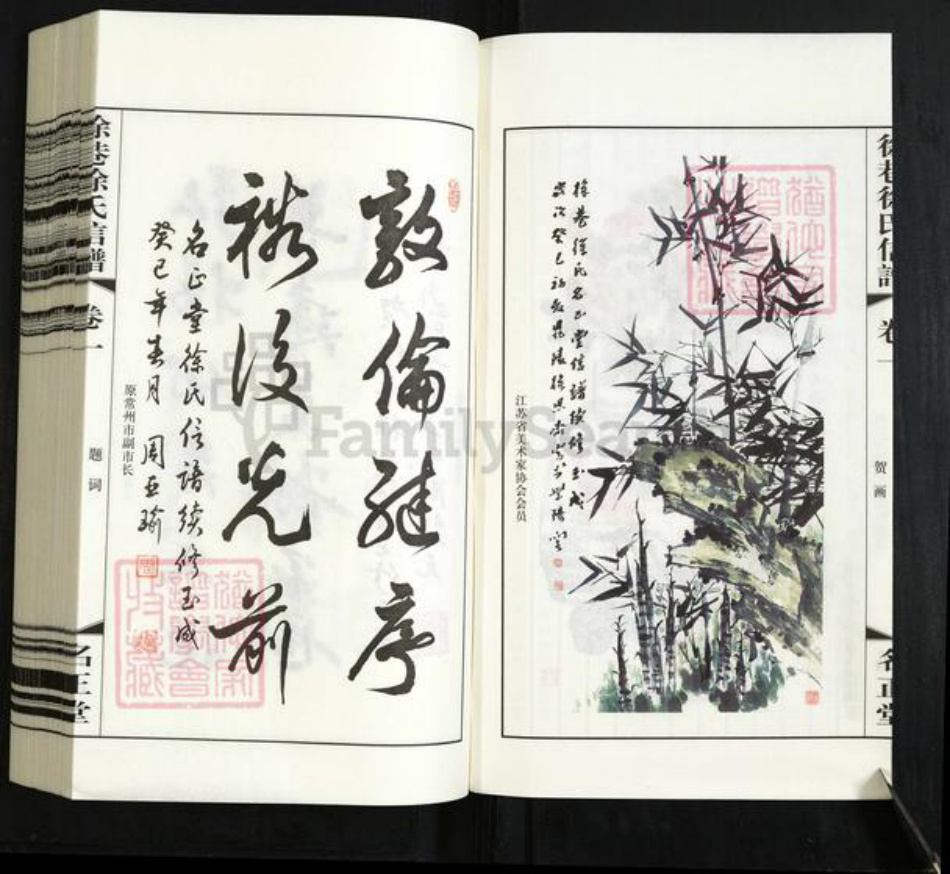 徐巷徐氏信譜
卷一
贺画
名正堂
徐巷徐氏名正堂信譜续修玉成
岁次癸巳初夏
江苏省美术家协会会员
敦倫継序
裕後光前
名正堂徐氏信譜続修玉成
癸巳年春月 周亚瑜
原常州市副市长
徐巷徐氏信譜
卷一
题词
名正堂
FamilySea